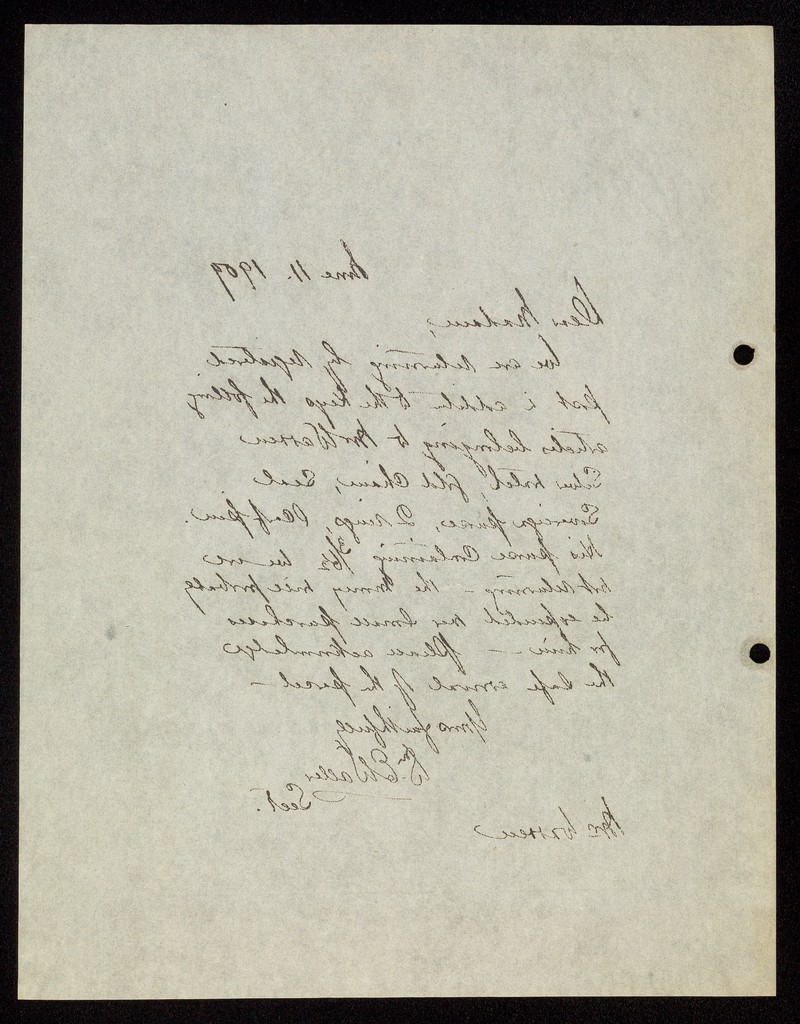 June 11. 1909
Dear Madam,
We are returning by registered
post in addition to the keys the follog
articles belonging to Mr Warren
Silver Watch, Gold Chain, Seal
Sovereign purse, 2 rings, Scarf pin.
His purse containing 3/6½ we are
not returning – the money will probably
be expended in small purchases
for him – Please acknowledge
the safe arrival of the parcel –
Yours faithfully
E Waller
Sect.
Mrs Warren